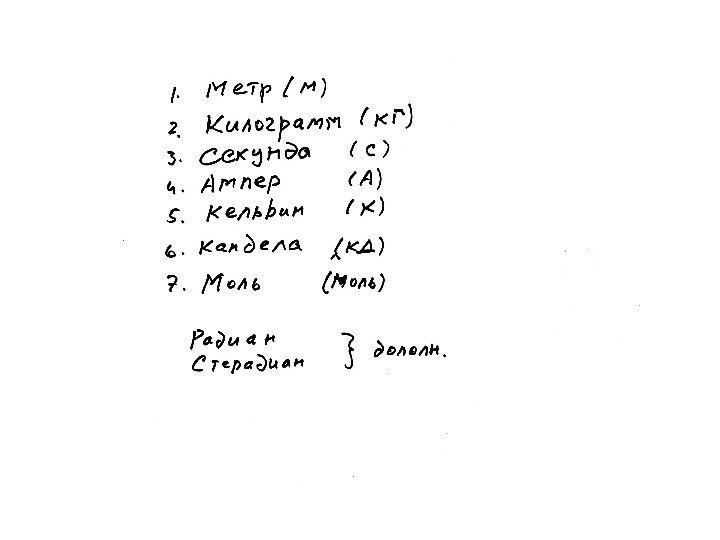 1. Метр (м)
2. Килограмм (кг)
3. Секунда (с)
4. Ампер (А)
5. Кельвин (К)
6. Кандела (кд)
7. Моль (моль)
Радиан
Стерадиан } дополн.